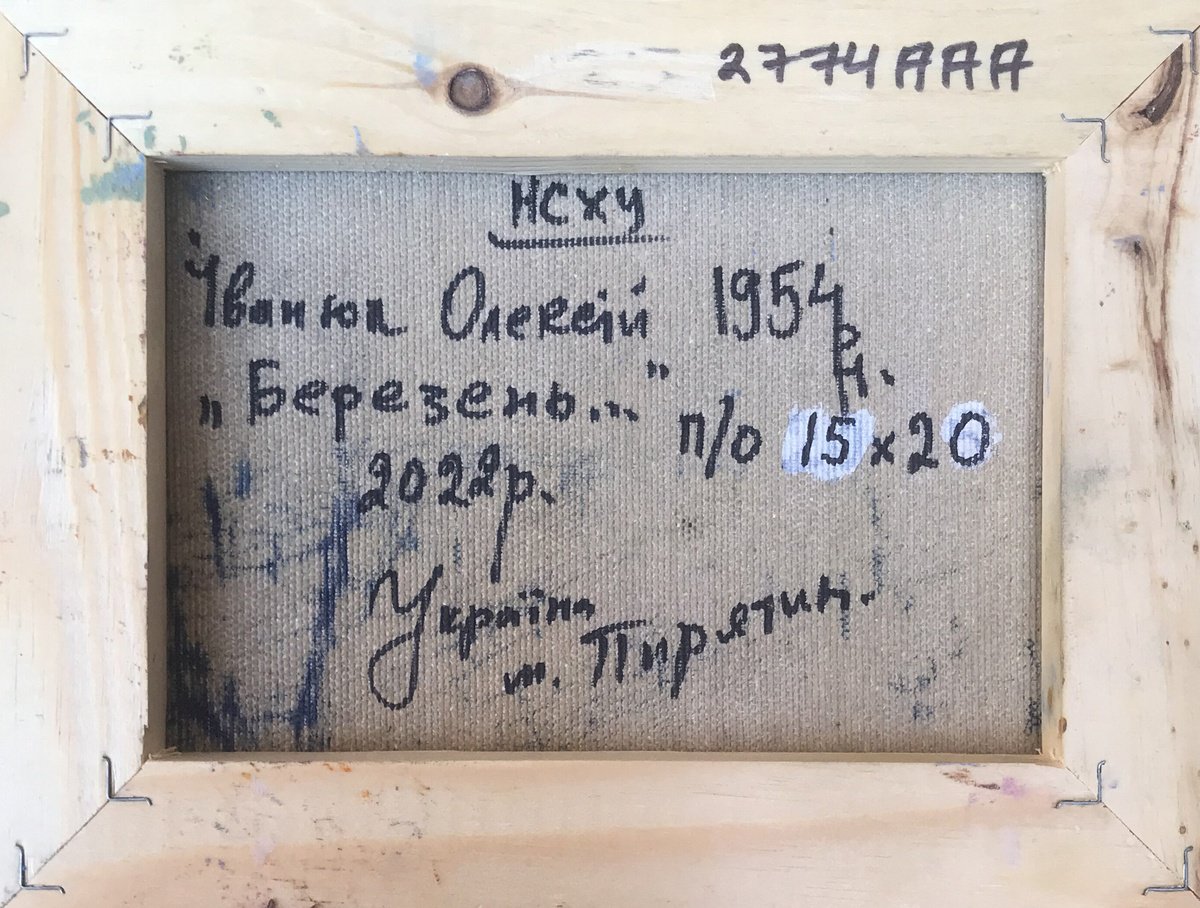 2774AAA
НСХУ
Іванюк Олексій 1954 р.н.
„Березень..."
п/о 15х20
2022р.
Україна
м. Пирятин.